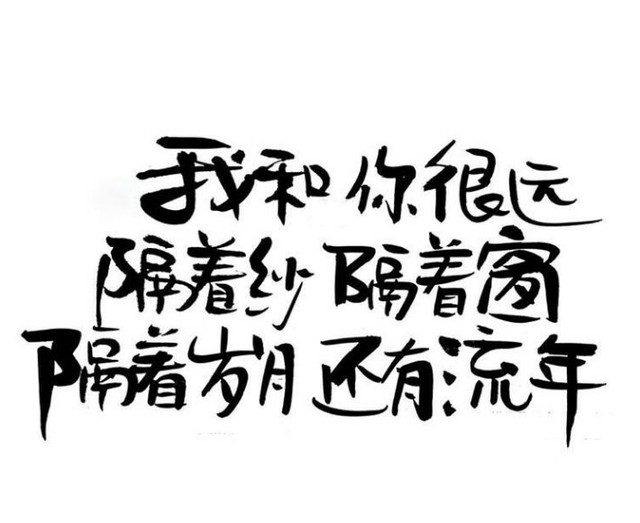 我和你很远
隔着纱隔着窗
隔着岁月还有流年